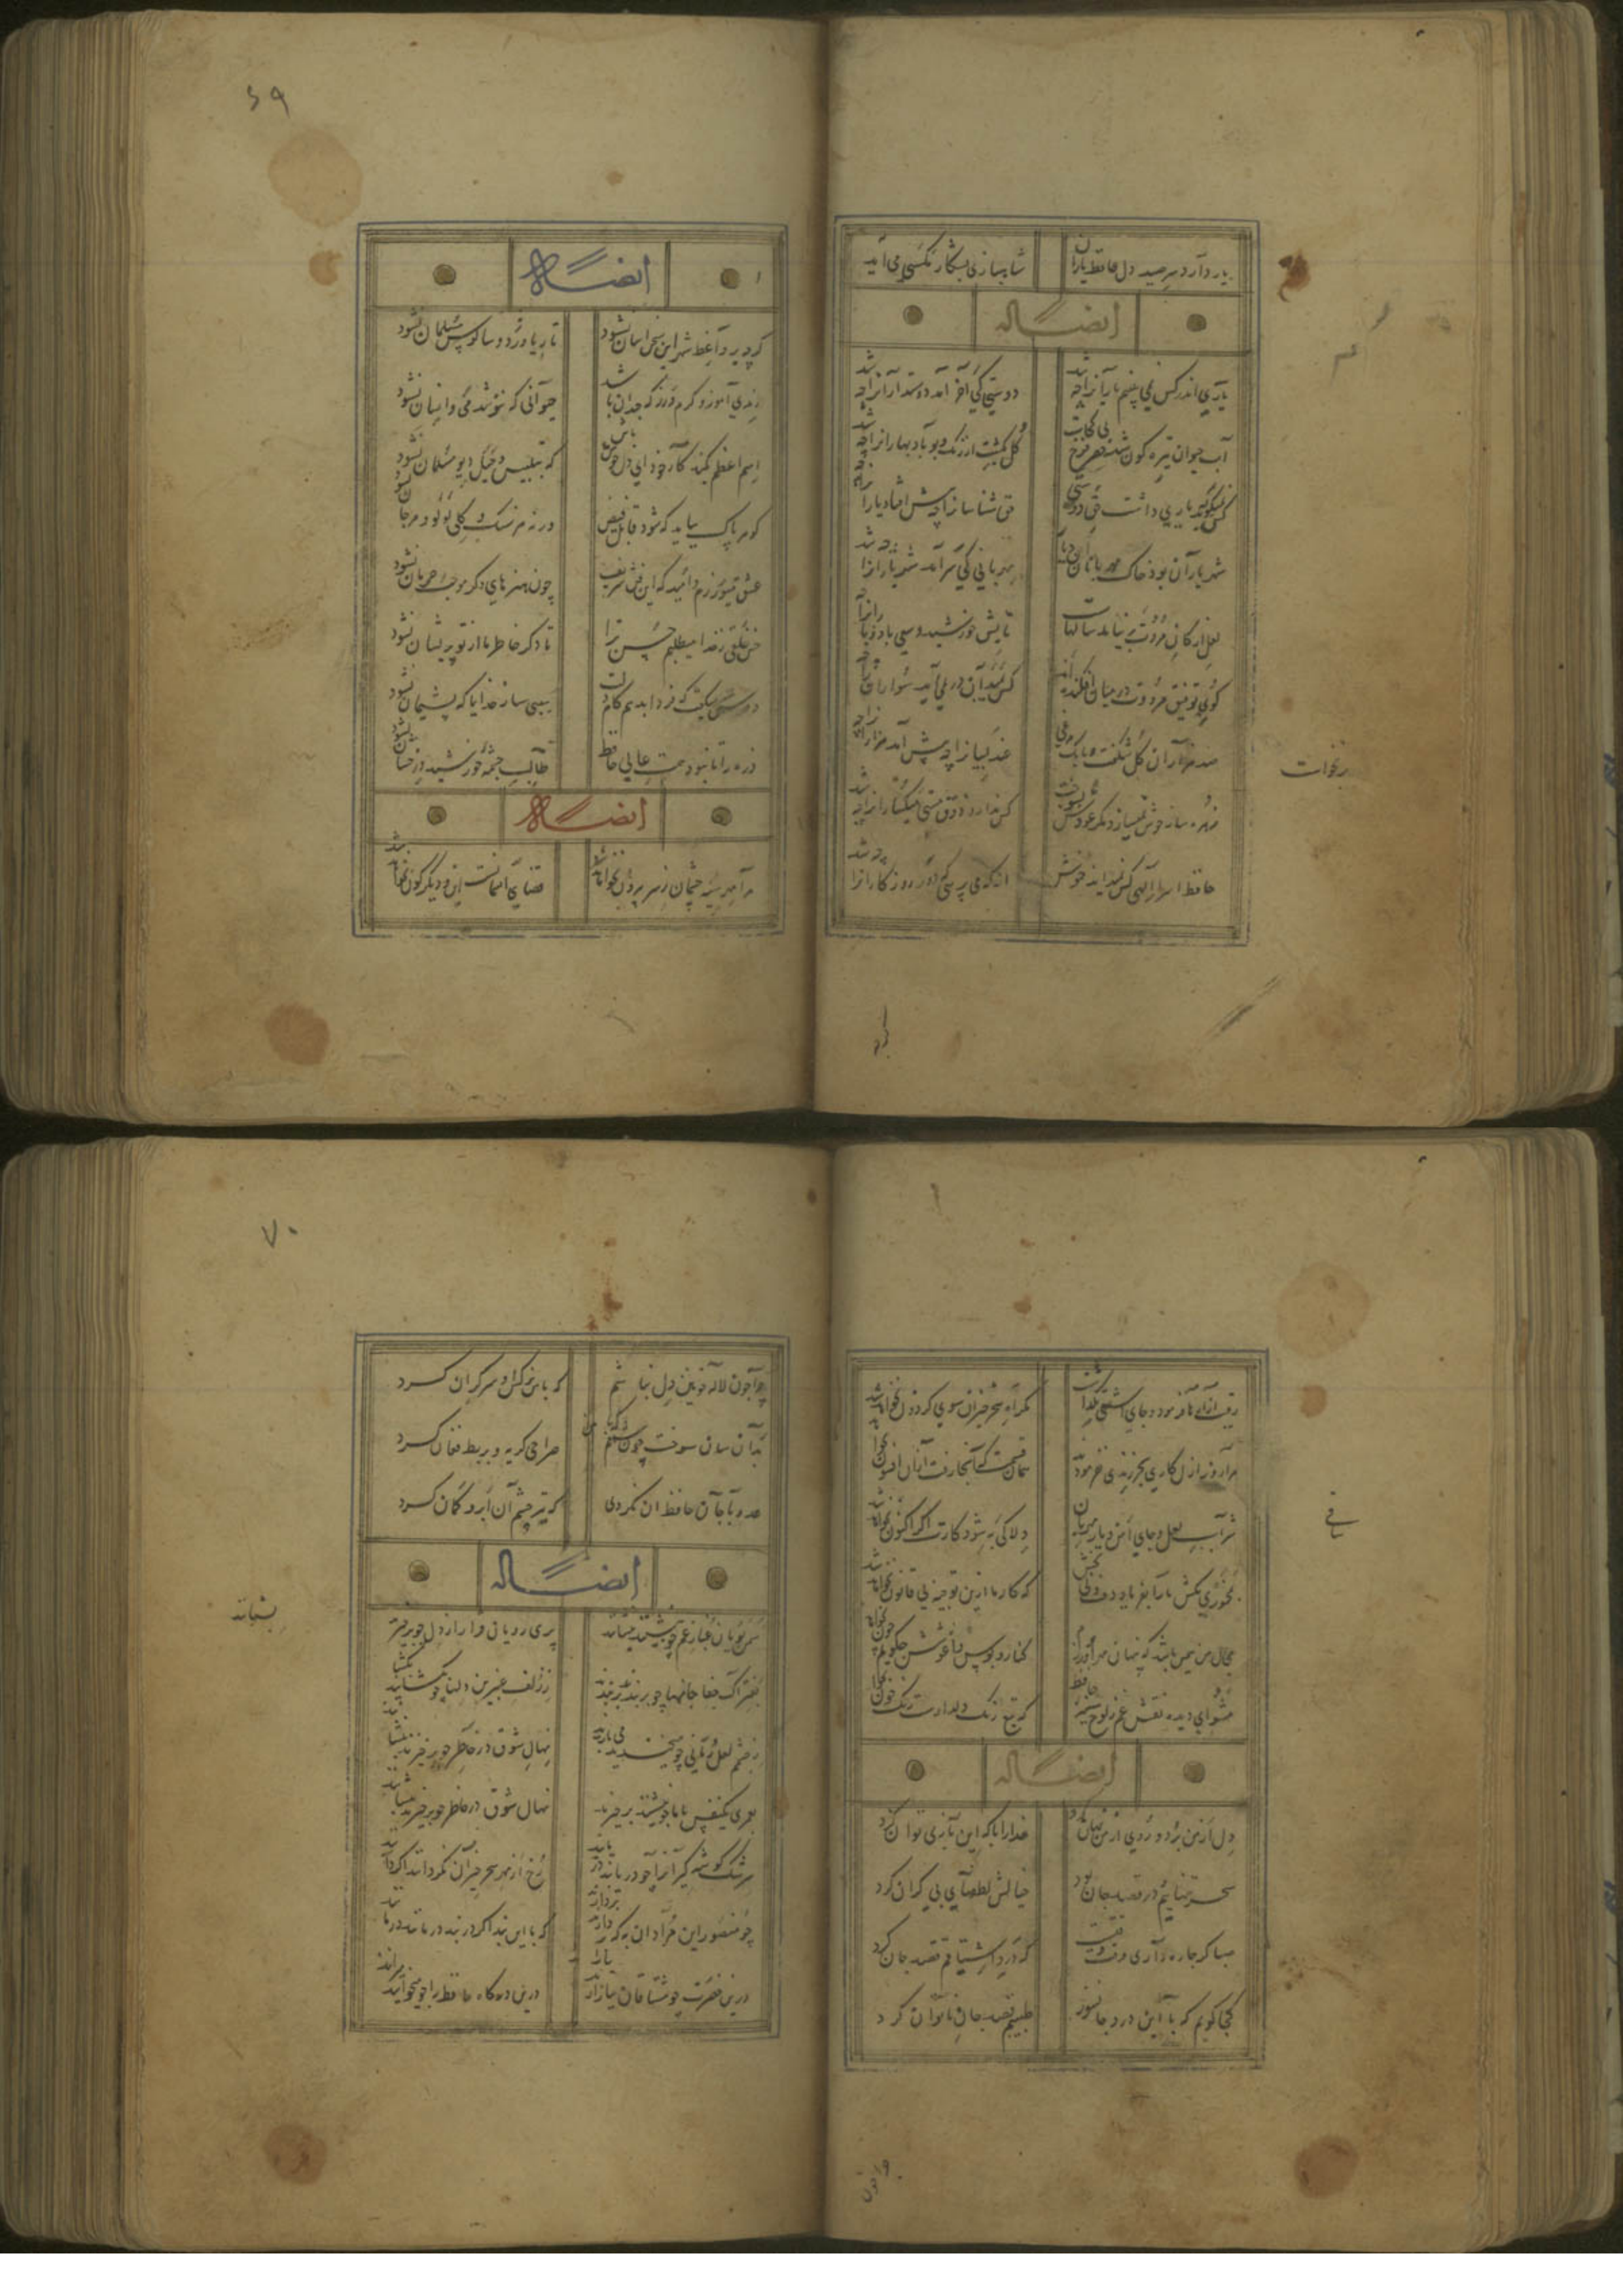 یار دارد سر صید دل حافظ یاران
شاهبازی بشکار مکسی می آید
ایضاً له
یاری اندر کس نمی بینم یارانرا چه شد
دوستی کی آخر آمد دوستدارانرا چه شد
آب حیوان تیره کون شد خضر فرخ پی کجاست
گل بگشت از رنگ و بو باد بهارانرا چه شد
کس نمیگوید که یاری داشت حق دوستی
حق شناسانرا چه پیش افتاد یارانرا چه شد
شهر یاران بود خاک مهربانان این دیار
مهربانی کی سر آمد شهریارانرا چه شد
لعلی از کان مروت بر نیامد سالهاست
تابش خورشید و سعی باد و بارانرا چه شد
گوی توفیق مروت در میان افکنده اند
کس بمیدان در نمی آید سوارانرا چه شد
صد هزاران گل شگفت و بانک مرغی
عندلیبانرا چه پیش آمد هزارانرا چه
زهره ساز خوش نمیسازد مگر عودش بسوخت
کس ندارد ذوق مستی میگسارانرا چه شد
حافظ اسرار الهی کس نمیداند خموش
از که می پرسی که دور روزگارانرا چه شد
برنخواست
۶۹
ایضاً له
گرچه بر واعظ شهر این سخن اسان نشود
تا ریا ورزد و سالوس مسلمان نشود
رندی آموز و کرم ورز که چندان باشد
حیوانی که ننوشد می و انسان نشود
اسم اعظم بکند کار خود ای دل خوش باش
که بتلبیس و حیل دیو مسلمان نشود
گوهر پاک بباید که شود قابل فیض
ورنه هر سنگ و گلی لولو و مرجان نشود
عشق میورزم و امید که این فن شریف
چون هنرهای دگر موجب حرمان نشود
حسن خلقی ز خدا میطلبم حسن ترا
تا دگر خاطر ما از تو پریشان نشود
دوش میگفت که فردا بدهم کام دلت
سببی ساز خدایا که پشیمان نشود
ذره را تا نبود همت عالی حافظ
طالب چشمه خورشید درخشان نشود
ایضاً له
مرا مهر سیه چشمان ز سر بیرون نخواهد شد
قضای آسمانست این و دیگرگون نخواهد شد
رقیب آزارها فرمود و جای آشتی نگذاشت
مگر آه سحرخیزان سوی گردون نخواهد شد
مرا روز ازل کاری بجز رندی نفرمودند
هر آن قسمت که آنجا رفت از آن افزون نخواهد
شراب لعل و جای امن و یار مهربان
دلا کی به شود کارت اگر اکنون نخواهد شد
که کار ما ازین توجیه بی قانون نخواهد شد
مجال من همین باشد که پنهان مهر او ورزم
کنار و بوس و آغوشش چگویم چون نخواهد
مشو ای دیده نقش غم ز لوح سینه حافظ
که تیغ زنگ دلدارست رنگ خون نخواهد
ساقی
ایضاً له
دل از من برد و روی از من نهان کرد
خدارا با که این بازی توان کرد
سحر تنهاییم در قصد جان بود
خیالش لطفهای بی کران کرد
صبا گر چاره داری وقت وقتست
که درد اشتیاقم قصد جان کرد
کجا گویم که با این درد جانسوز
طبیبم قصد جان ناتوان کرد
۷۰
چرا چون لاله خونین دل نباشم
که با من نرگس او سرگران کرد
بدان سان سوخت چون شمعم
صراحی گریه و بربط فغان کرد
عدو با جان حافظ ان نکردی
که تیر چشم آن ابرو کمان کرد
ایضاً له
سمن بویان غبار غم چو بنشینند بنشانند
پری رویان قرار از دل چو
بفتراک جفا جانها چو بربندند بربندند
ز زلف عنبرین دلها چو بگشایند بگشایند
ز چشم لعل رمانی چو میخندند می بارند
نهال شوق در خاطر چو برخیزند بنشانند
بعمری یکنفس با ما چو بنشینند برخیزند
نهال شوق در خاطر چو برخیزند بنشانند
سرشک گوشه گیرانرا چو دریابند در یابند
رخ از مهر سحرخیزان نگردانند اگر دانند
چو منصور این مرادان که بردارند بردارند
که با این بند اگر در بند درمانند درمانند
درین حضرت چو مشتاقان نیاز ارند
درین درگاه حافظ را چو میخوانند میرانند
بنشانند